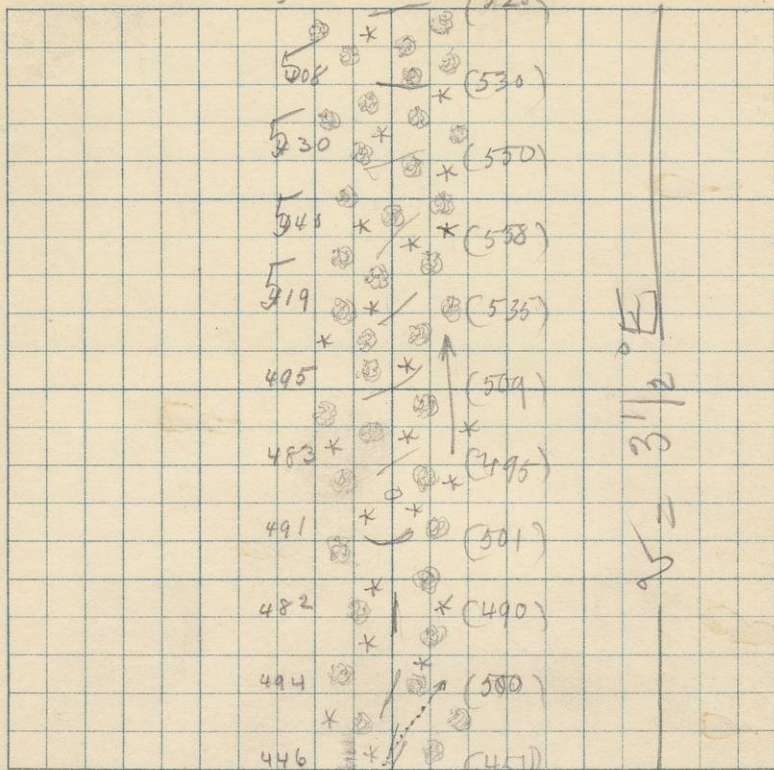 508 (530)
530 (550)
540 (558)
519 (535)
495 (509)
483 (495)
491 (501)
482 (490)
494 (500)
446
3 1/2 °E